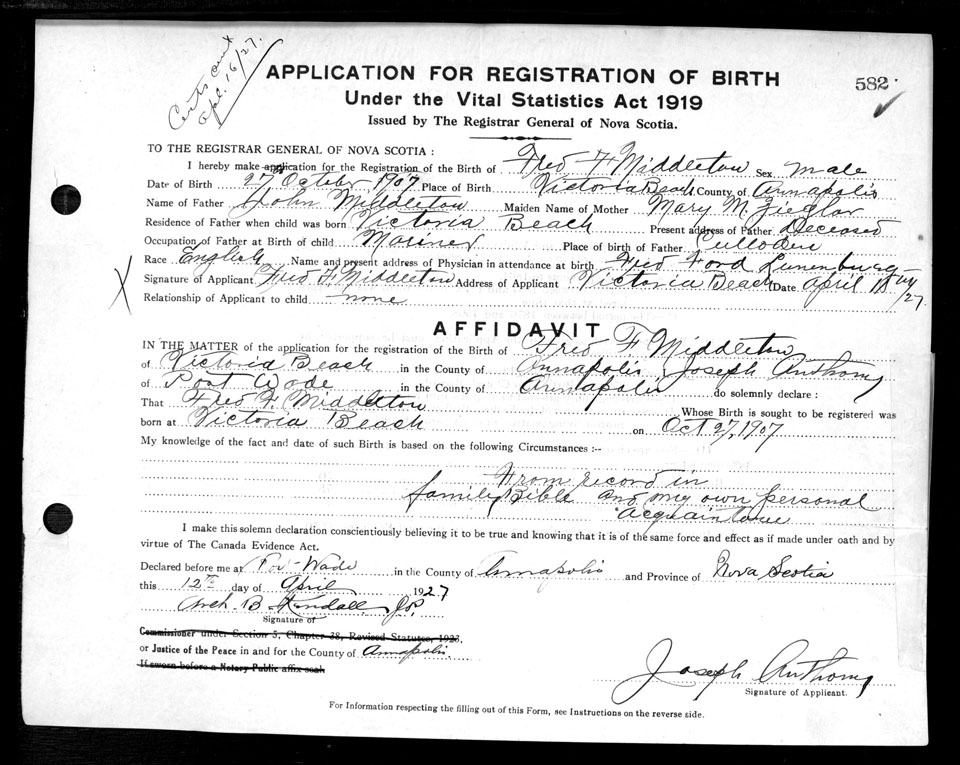 Certs out
Apl. 16/27.
582
APPLICATION FOR REGISTRATION OF BIRTH
Under the Vital Statistics Act 1919
Issued by The Registrar General of Nova Scotia.
TO THE REGISTRAR GENERAL OF NOVA SCOTIA :
I hereby make application for the Registration of the Birth of Fred F Middleton Sex male
Date of Birth 27 October 1907 Place of Birth Victoria Beach County of Annapolis
Name of Father John Middleton Maiden Name of Mother Mary M. Zieglar
Residence of Father when child was born Victoria Beach Present address of Father Deceased
Occupation of Father at Birth of child Mariner Place of birth of Father Culloden
Race English Name and present address of Physician in attendance at birth Fred Ford Lunenburg
Signature of Applicant Fred F. Middleton Address of Applicant Victoria Beach Date April 18 /27.
Relationship of Applicant to child none
AFFIDAVIT
IN THE MATTER of the application for the registration of the Birth of Fred F Middleton
of Victoria Beach in the County of Annapolis Joseph Anthony
of Port Wade in the County of Annapolis do solemnly declare :
That Fred F. Middleton Whose Birth is sought to be registered was
born at Victoria Beach on Oct 27, 1907
My knowledge of the fact and date of such Birth is based on the following Circumstances :--
From record in
family Bible and my own personal
acquaintance
I make this solemn declaration conscientiously believing it to be true and knowing that it is of the same force and effect as if made under oath and by
virtue of The Canada Evidence Act.
Declared before me at Port Wade in the County of Annapolis and Province of Nova Scotia
this 12th day of April 1927
Arch. B. Kendall J.P.
Signature of
Commissioner under Section 5, Chapter 38, Revised Statutes, 1923,
or Justice of the Peace in and for the County of Annapolis.
If sworn before a Notary Public affix seal
Joseph Anthony
Signature of Applicant.
For Information respecting the filling out of this Form, see Instructions on the reverse side.